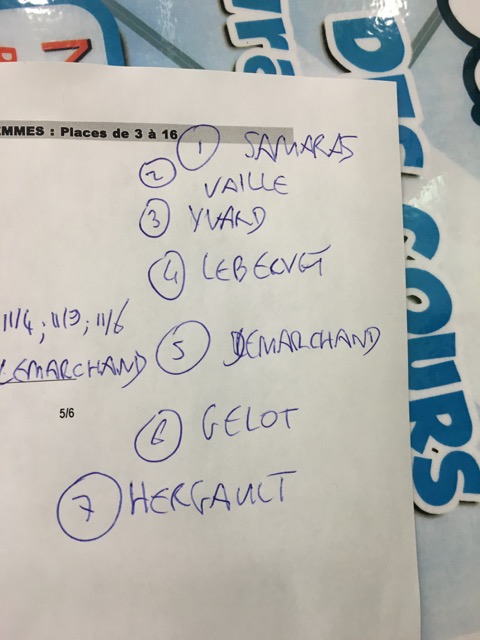 EMMES : Places de 3 à 16
1 SAMARAS
2 VAILLE
3 YVARD
4 LEBEQVET
11/4 ; 11/9 ; 11/6
LEMARCHAND
5 LEMARCHAND
5/6
6 GELOT
7 HERGAULT
DES COURS